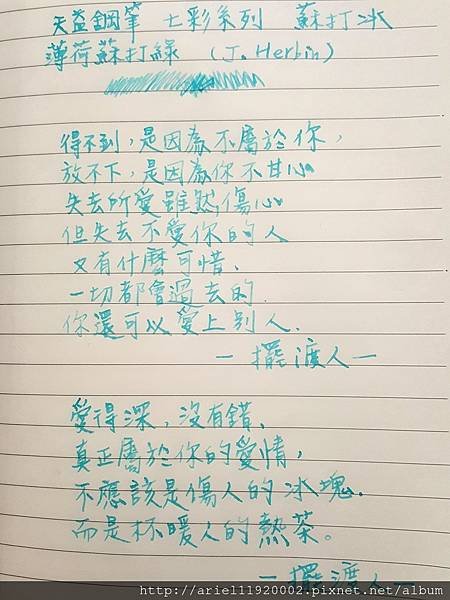 天益鋼筆 七彩系列 蘇打冰
薄荷蘇打綠 (J. Herbin)
得不到,是因為不屬於你,
放不下,是因為你不甘心。
失去所愛雖然傷心。
但失去不愛你的人
又有什麼可惜、
一切都會過去的.
你還可以愛上別人.
— 擺渡人 —
愛得深,沒有錯、
真正屬於你的愛情,
不應該是傷人的冰塊.
而是杯暖人的熱茶。
— 擺渡人 —
http://ariel11920002.pixnet.net/album